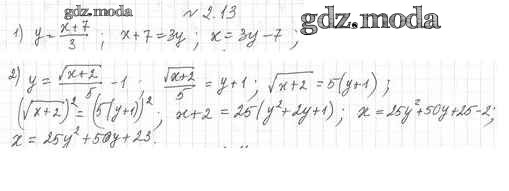 gdz.moda № 2.13 gdz.moda
1) y = (x+7)/3 ; x+7 = 3y ; x = 3y - 7 ;
2) y = √(x+2)/5 - 1 ; √(x+2)/5 = y+1 ; √(x+2) = 5(y+1) ;
(√(x+2))² = (5(y+1))² ; x+2 = 25(y²+2y+1) ; x = 25y²+50y+25-2 ;
x = 25y²+50y+23.